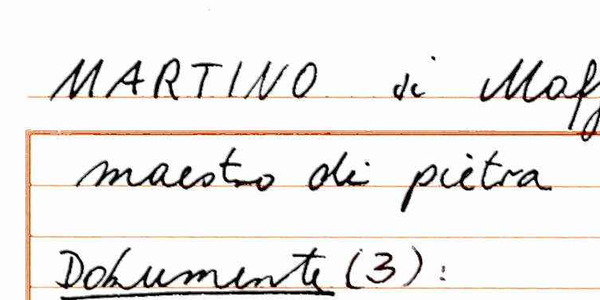 MARTINO di Maf
maestro di pietra
Dokumente (3):